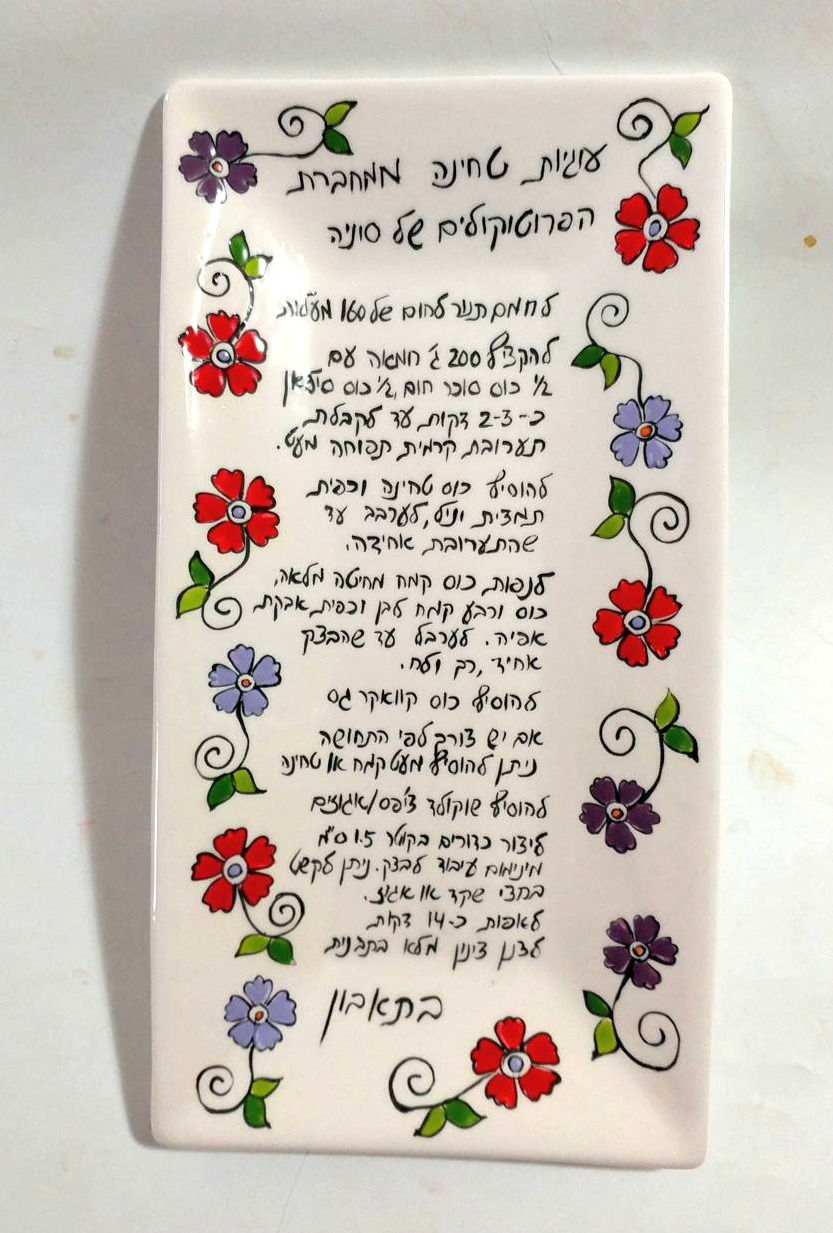 עוגיות טחינה ממחברת
הפרוטוקולים של סוניה
לחמם תנור לחום של 160 מעלות
להקציף 200 ג' חמאה עם
1/2 כוס סוכר חום, 1/2 כוס סילאן
כ-2-3 דקות עד לקבלת
תערובת קרמית תפוחה מעט.
להוסיף כוס טחינה וכפית
תמצית וניל, לערבב עד
שהתערובת אחידה.
לנפות כוס קמח מחיטה מלאה,
כוס ורבע קמח לבן וכפית אבקת
אפיה. לערבל עד שהבצק
אחיד, רך ולח.
להוסיף כוס קוואקר גס
אם יש צורך לפי התחושה
ניתן להוסיף מעט קמח או טחינה
להוסיף שוקולד צ'יפס/אגוזים
ליצור כדורים בקוטר 1.5 ס"מ
מינימום עיבוד לבצק. ניתן לקשט
בחצי שקד או אגוז.
לאפות כ-14 דקות
לצנן צינון מלא בתבנית
בתאבון